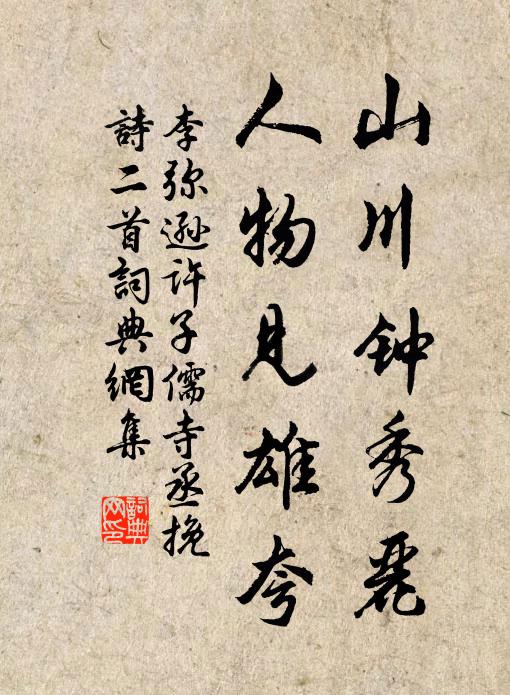 山川钟秀丽
人物见雄夸
李弥逊许子儒寺丞挽
詩二首詞典網集
詞典
网印